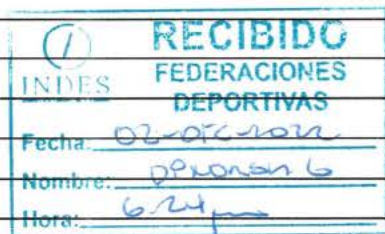 RECIBIDO
INDES
FEDERACIONES
DEPORTIVAS
Fecha: 02-DIC-2022
Nombre:
Hora: 6:24 pm